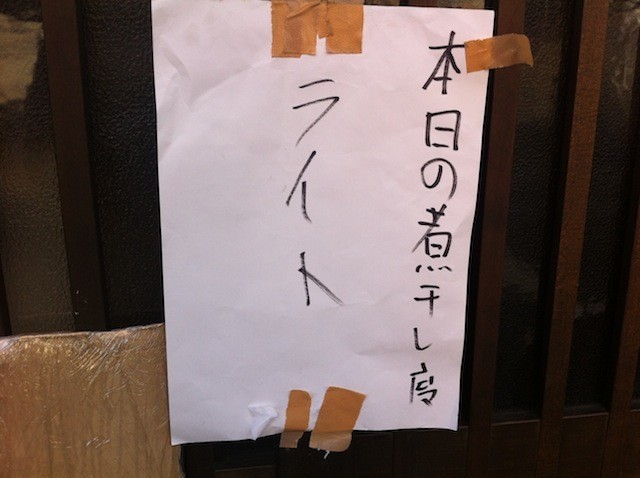 本日の煮干し度
ライト